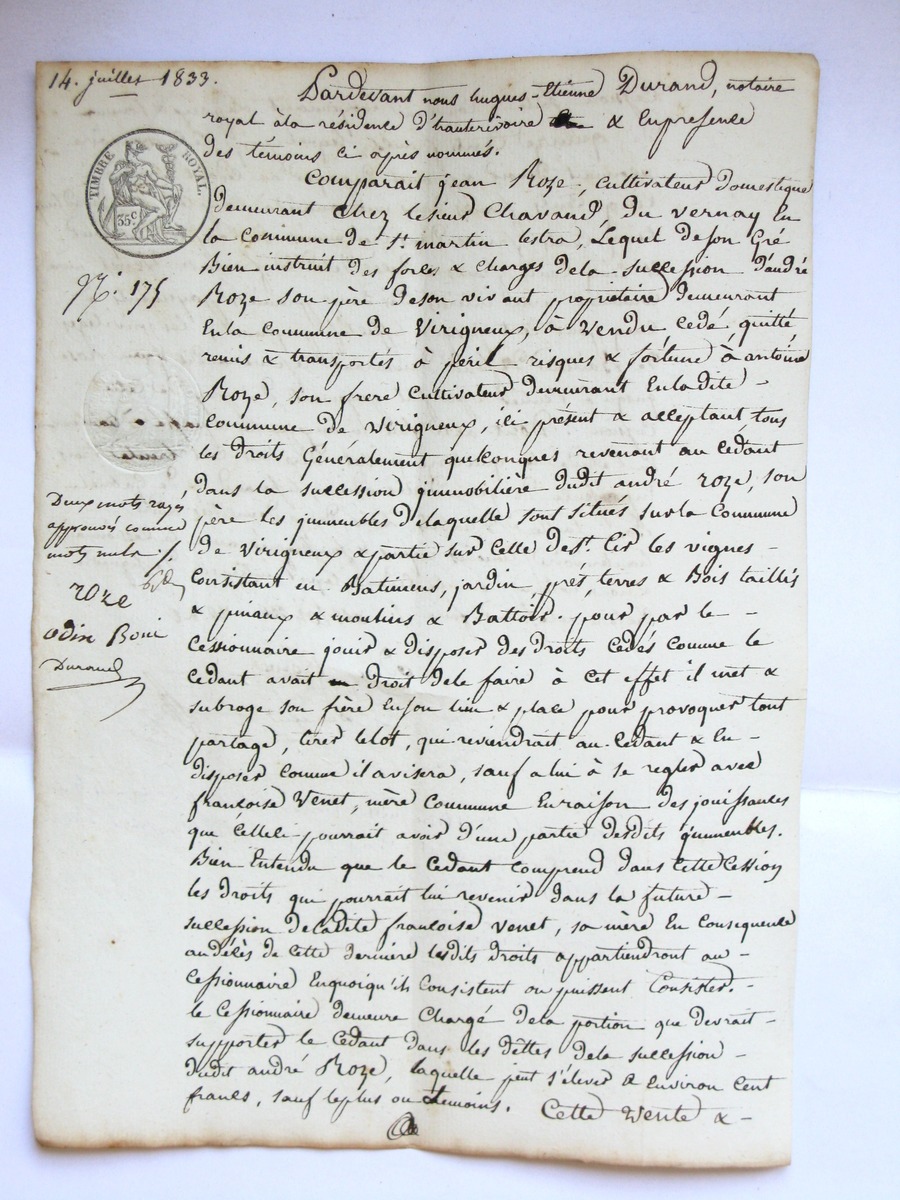 14. juillet 1833.
Pardevant nous hugues-Etienne Durand, notaire
royal à la résidence d'hauterivoire & En presence
des témoins ci après nommés.
TIMBRE ROYAL.
35c
Comparait jean Roze, cultivateur Domestique
demeurant Chez le sieur Chavand, du Vernay En
la Commune de St. martin lestra, Lequel de son Gré
Bien instruit des forces & Charges de la succession d'andré
N°. 175
Roze son père de son vivant propriétaire demeurant
En la Commune de Virigneux, à Vendu cedé quitté
remis & transportés à péril risques & fortune à antoine
Roze, son frere cultivateur demeurant En la dite -
Commune de Virigneux, ici présent & acceptant, tous
les droits Généralement quelconques revenant au Cédant
dans la succession immobilière dudit andré roze, son
père les immeubles de laquelle sont situés sur la Commune
de Virigneux & partie sur Celle de St. Cir les vignes -
Consistant en Batimens, jardin, prés, terres & Bois taillis
& pinaux & moulins & Battoir. pour par le -
Cessionnaire jouir & disposer des Droits Cédés comme le
Cédant avait Droit de le faire à Cet effet il met &
subroge son frère En son lieu & place pour provoquer tout
partage, tirer le lot, qui reviendrait au Cédant & En -
disposer Comme il avisera, sauf a lui à se regler avec
françoise Venet, mère Commune En raison des jouissances
que Celle Ci pourrait avoir d'une partie desdits immeubles.
Bien Entendu que le Cédant comprend dans Cette Cession
les droits qui pourrait lui revenir dans la future -
succession de la dite françoise Venet, sa mère En Consequence
au décès de Cette derniere les dits droits appartiendront au -
Cessionnaire En quoi qu'ils Consistent ou puissent Consister. -
le Cessionnaire demeure Chargé de la portion que devrait -
supporter le Cédant dans les dettes de la succession -
dudit andré Roze, laquelle peut s'élever à Environ Cent
francs, sauf le plus ou le moins. Cette Vente & -
Deux mots rayés
approuvés comme
mots nuls ./.
roze
odin Boni
Durand